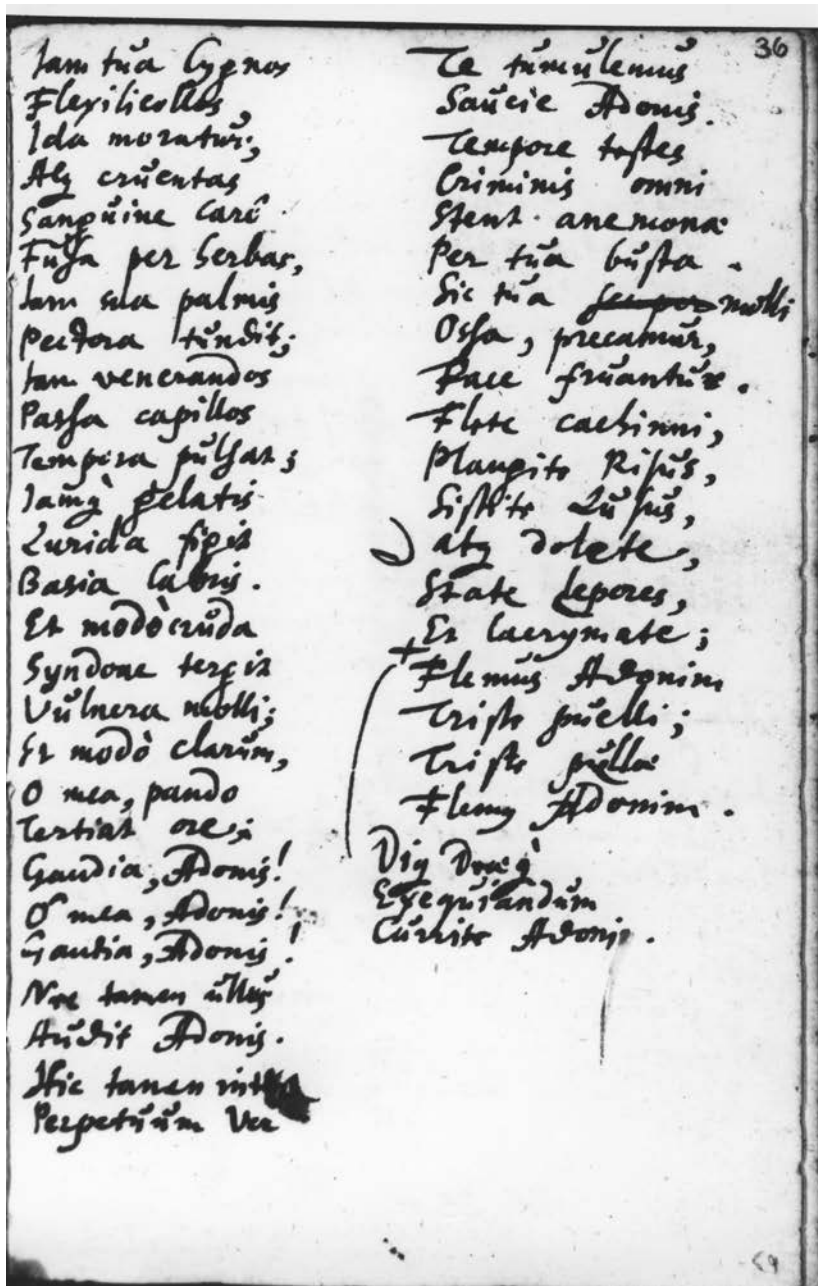 36
Iam tua Cygnos
Flexilicollos,
Ida moratur;
Atq cruentas
Sanguine carô
Fusa per herbas,
Iam sua palmis
Pectora tundit;
Iam venerandos
Passa capillos
Tempora pulsat;
Iamq̀ gelatis
Lurida figit
Basia labris.
Et modò cruda
Syndone tergit
Vulnera molli;
Et modò clarum,
O mea, pando
Tertiat ore;
Gaudia, Adonis!
O mea, Adonis!
Gaudia, Adonis!
Nec tamen ullus
Audit Adonis.
Hic tamen
Perpetuum Ver
Te tumulemus
Saucie Adonis.
Tempore testes
Criminis omni
Stent anemonæ
Per tua busta.
Sic tua semper molli
Ossa, precamur,
Pace fruantur.
Flete cachinni,
Plangite Risus,
Sistite Lusus,
atq dolete,
State lepores,
Et lacrymate;
+ Flemus Adonim
Triste puelli;
Triste puellæ
Flemq Adonim.
Diq Deæq̀
Exequiandum
Currite Adonin.